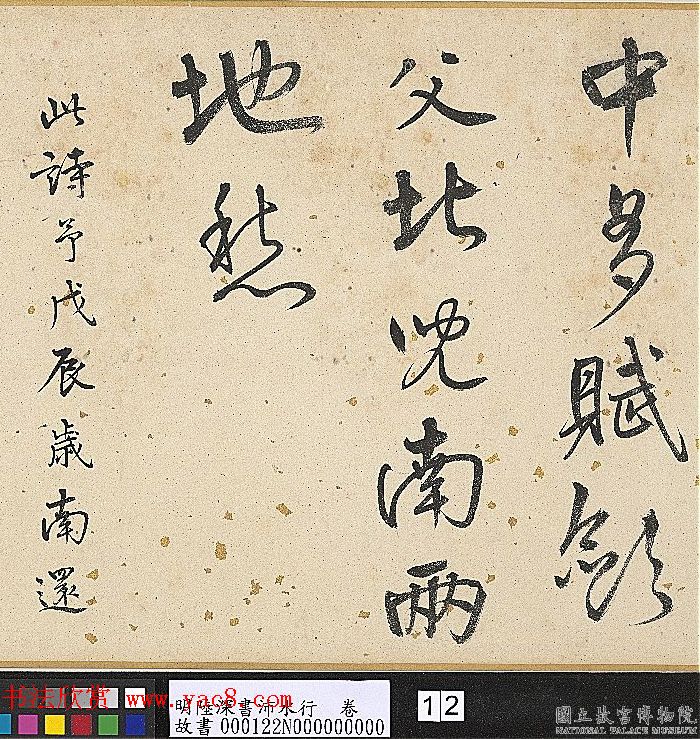 中多賦斂
父北児南兩
地愁
此詩予戊辰歲南還
书法欣赏 www.yac8.com
明陸深書沛水行 卷
故書000122N000000000
12
國立故宮博物院
NATIONAL PALACE MUSEUM